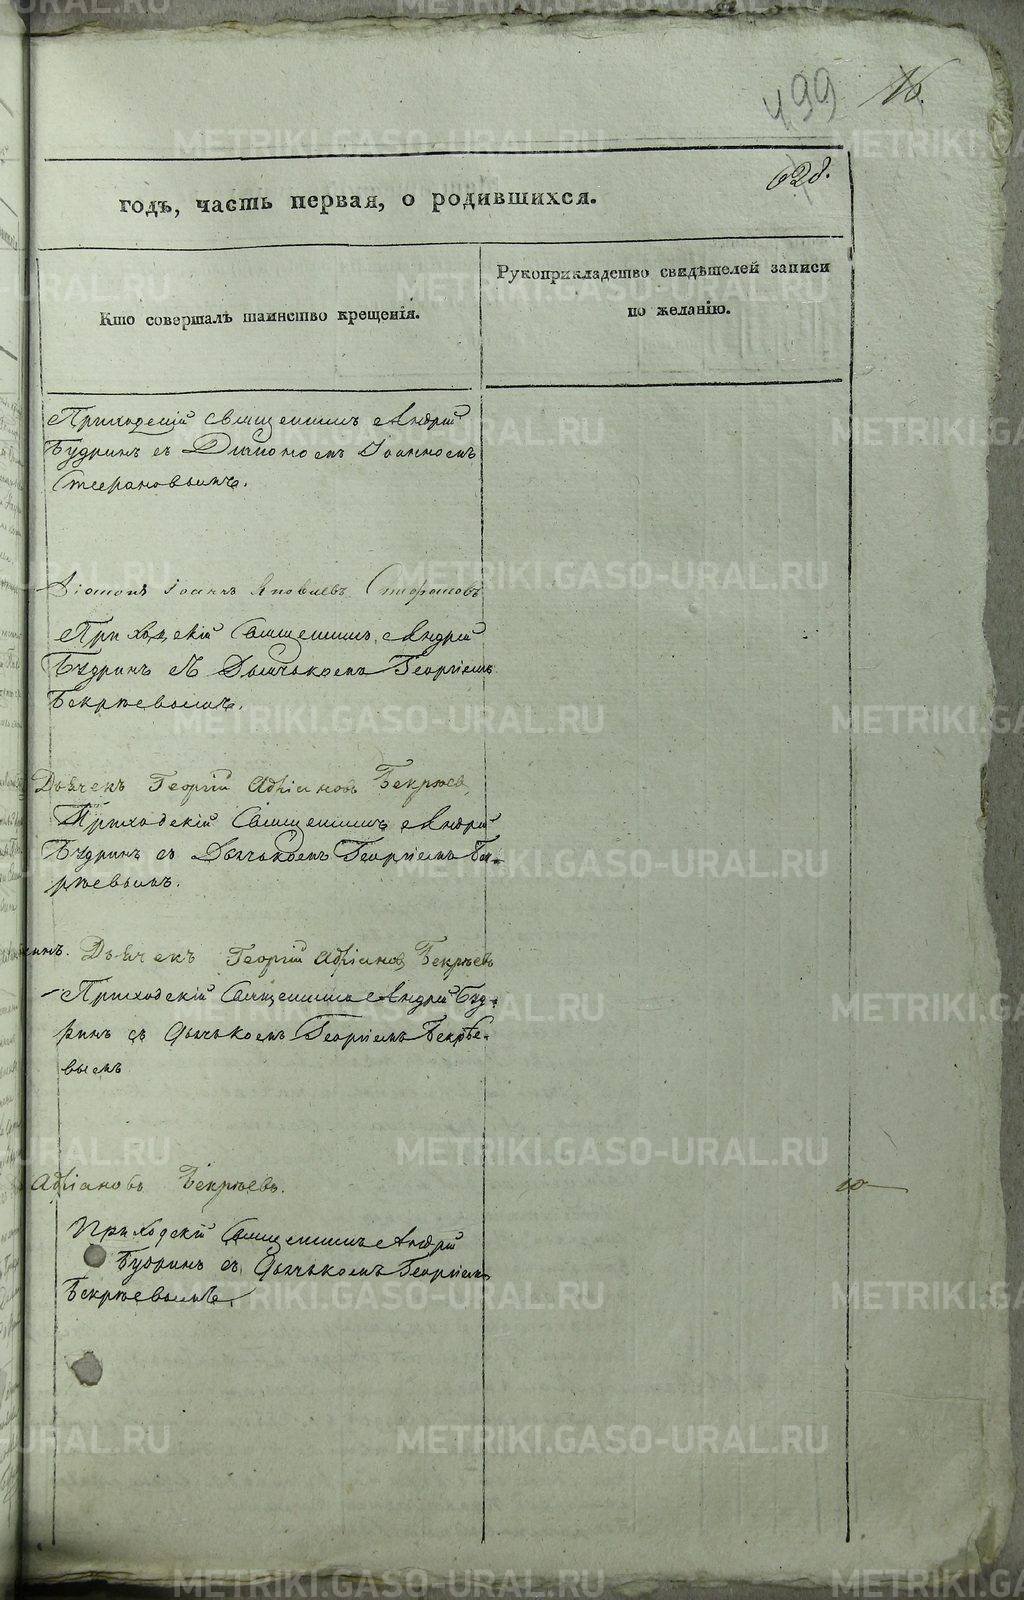 499 16.
628.
годъ, часть первая, о родившихся.
Кто совершалъ таинство крещенія.
Рукоприкладство свидѣтелей записи
по желанію.
Приходскій священникъ Андрей
Будринъ съ Діакономъ Іоанномъ
Стефановымъ.
Діаконъ Іоаннъ Яковлевъ Стефановъ
Приходскій Священникъ Андрей
Будринъ съ Дьячькомъ Георгіемъ
Бекряевымъ.
Дьячекъ Георгій Адріановъ Бекряевъ
Приходскій Священникъ Андрей
Будринъ съ Дьячькомъ Георгіемъ Бек-
ряевымъ.
Дьячекъ Георгій Адріановъ Бекряевъ
Приходскій Священникъ Андрей Буд-
ринъ съ Дьячькомъ Георгіемъ Бекряе-
вымъ
Адріановъ Бекряевъ.
Приходскій Священникъ Андрей
Будринъ съ Дьячькомъ Георгіемъ
Бекряевымъ.
METRIKI.GASO-URAL.RU